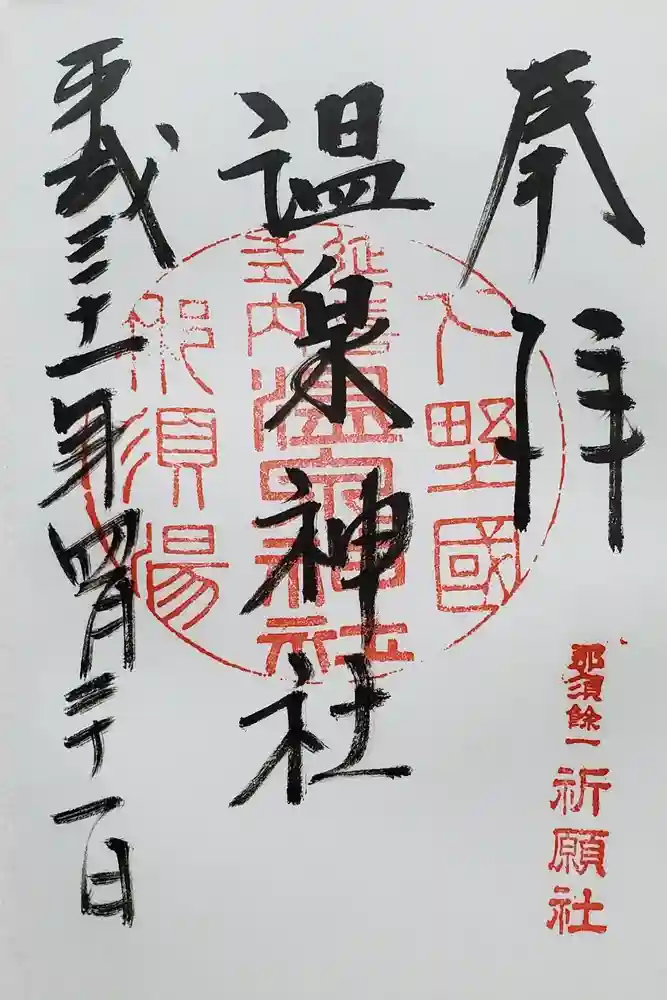 奉拝
下野國
延喜
式内
温泉神社
温泉神社
那須湯
平成三十一年四月二十一日
那須餘一
祈願社